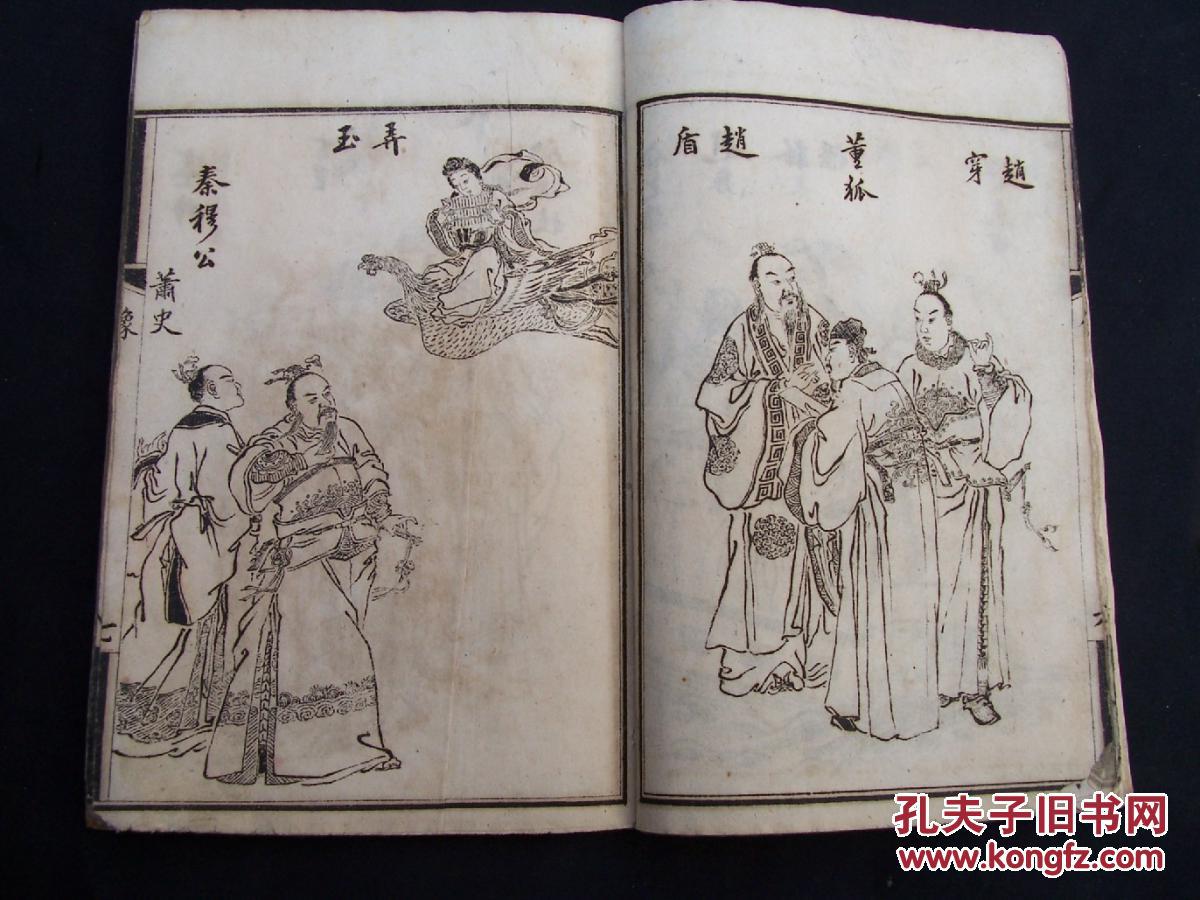 趙穿
董狐
趙盾
弄玉
秦穆公
蕭史
象
孔夫子旧书网
www.kongfz.com